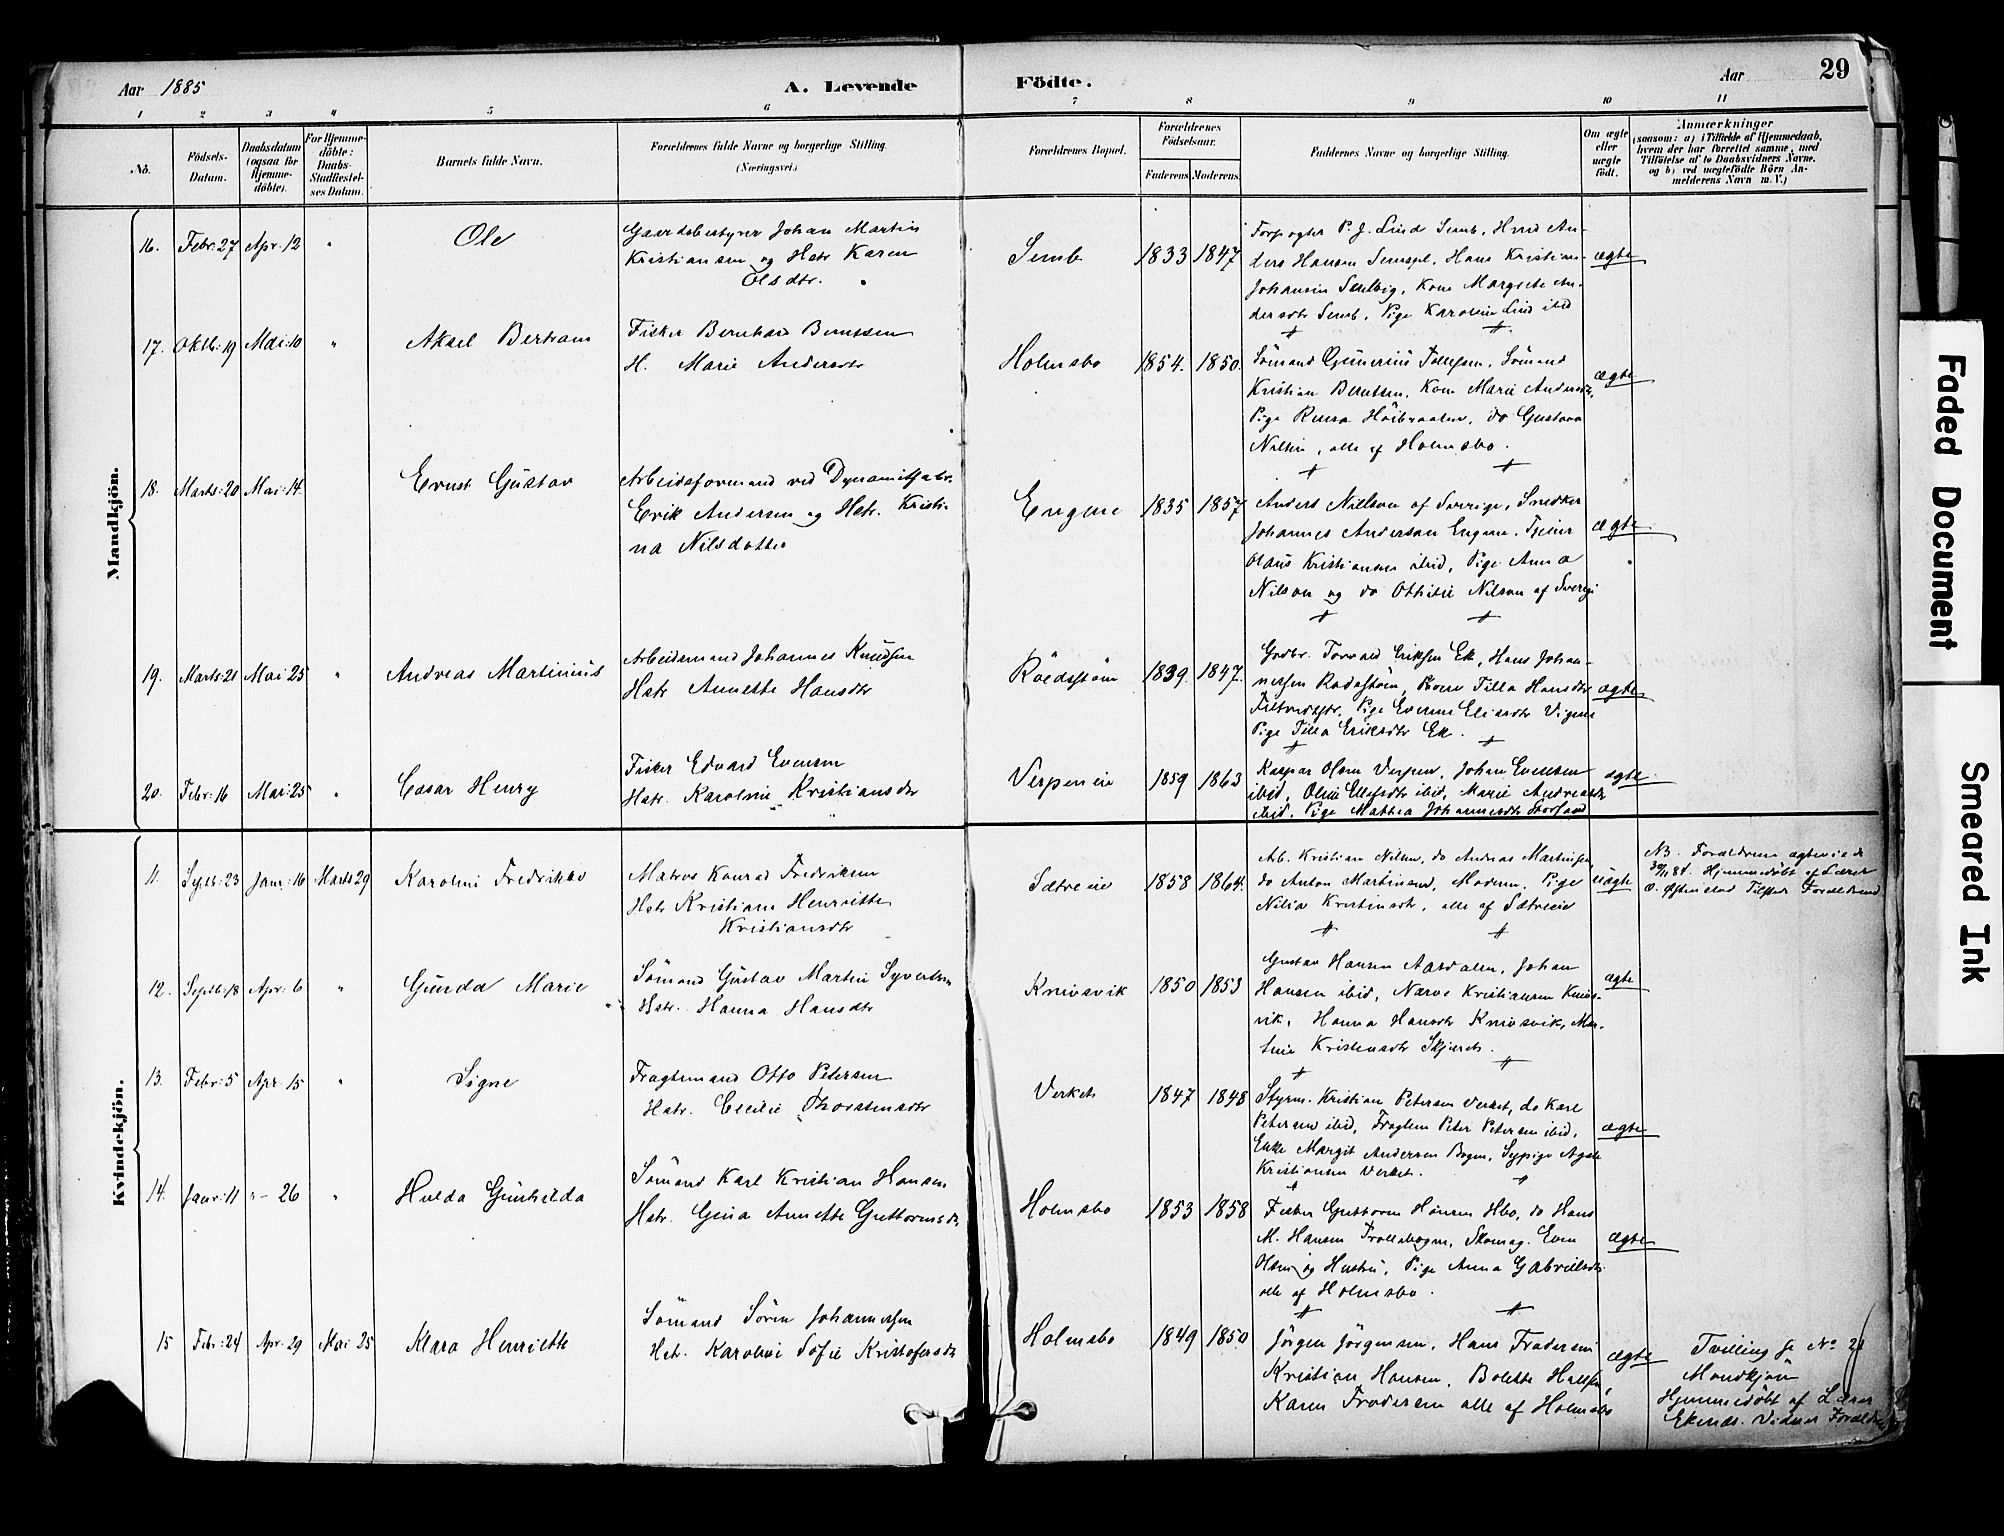 Aar 1885
A. Levende
Födte.
Aar
29
1 2 3 4 5 6 7 8 9 10 11
No.
Födsels-
Datum.
Daabsdatum
(ogsaa för
Hjemme-
döbte).
For Hjemme-
döbte:
Daabs-
Stadfæstel-
ses Datum.
Barnets fulde Navn.
Forældrenes fulde Navne og borgerlige Stilling.
(Næringsvei.)
Forældrenes Bopæl.
Forældrenes
Födselsaar.
Faderens Moderens.
Faddernes Navne og borgerlige Stilling.
Om ægte
eller
uægte
födt.
Anmærkninger
(saasom: a) i Tilfælde af Hjemmedaab,
hvem der har forrettet samme, med
Tilföielse af to Daabsvidners Navne,
og b) ved uægtefödte Börn An-
melderens Navn m. V.)
Mandkjön.
16. Febr: 27 Apr: 12 "
Ole
Gaardsbestyrer Johan Martin
Kristiansen og Hstr Karen
Olsdtr.
Semb 1833 1847
Forpagter P. J. Lind Semb, Hmd An-
ders Hansen Sempl, Hans Kristian
Johansen Selvig, Kone Margrete An-
dersdtr Semb, Pige Karoline Lind ibid
ægte
17. Oktb: 19 Mai: 10 "
Aksel Bertram
Fisker Bernhard Berntsen
H. Marie Andersdtr
Holmsbo 1854. 1850.
Sömand Gunerius Tollefsen, Sömand
Kristian Berntsen, Kone Marie Andersdtr,
Pige Höibraaten, do Gustava
Nilsen, alle af Holmsbo.
ægte
18. Marts: 20 Mai: 14.
Ernst Gustav
Arbeidsformand ved Dynamitfabr.
Erik Andersen og Hstr. Kristi-
na Nilsdatter
Engene 1835 1857
Anders Nielson af Sverige, Snedker
Johannes Anderson Engene, Tjener
Olaus Kristiansen ibid, Pige Anna
Nilson og do Othilie Nilson af Sverige
ægte
19. Marts: 21 Mai: 25 "
Andreas Martinius
Arbeidsmand Johannes Knudsen
Hstr Annette Hansdtr
Rödstöin 1839. 1847.
Grdbr. Torvald Eriksen Ek, Hans Johan-
nessen Rödstöin, Kone Tilla Hansdtr
Filtvedt, Pige Evenne Elisdtr Vigene
Pige Tilla Eriksdtr Ek.
ægte
20. Febr: 16 Mai: 25 "
Casar Henry
Fisker Edvard Evensen
Hstr. Karoline Kristiansdtr
Verpen eie 1859 1863
Kaspar Olsen Verpen, Johan Evensen
ibid, Oline Ellefsdtr ibid, Marie Andreasdtr
ibid, Pige Mathea Johannesdtr Storsand
ægte
Kvindekjön.
11. Septb: 23 Janr: 16 Marts 29
Karoline Fredrikke
Matros Konrad Fredriksen
Hstr Kristiane Henriette
Kristiansdtr
Sætreeie 1858 1864.
Arb. Kristian Nilsen, do Andreas Martinsen,
do Anton Martinsen, Moderen, Pige
Nilia Kristinsdtr, alle af Sætreeie
uægte
NB. Forældrene ægteviede
84. Hjemmedöbt af Lærer
O. Östenstad Tilsted: Forældrene
12. Septb: 18 Apr: 6 "
Gunda Marie
Sömand Gustav Martin Syvertsen
Hstr. Hanna Hansdtr
Knivsvik 1850 1853
Gustav Hansen Aasdalen, Johan
Hansen ibid, Narve Kristiansen Knivs-
vik, Hanna Hansdtr Knivsvik, Mar-
tine Kristensdtr Skjæret.
ægte
13. Febr: 5 Apr: 15 "
Signe
Fragtemand Otto Petersen
Hstr. Cecilie Thorstensdtr
Verket 1847 1848
Styrm. Kristian Petersen Verket, do Karl
Petersen ibid, Fragtem Peter Petersen ibid,
Enke Margit Andersen Bogen, Sypige Agate
Kristiansen Verket.
ægte
14. Janr: 11 " - 26 "
Hulda Gunhilda
Sömand Karl Kristian Hansen
Hstr. Gina Annette Guttormsdtr
Holmsbo 1853 1858
Fisker Guttorm Hansen Hbo, do Hans
M. Hansen Trollebogen, Skomag. Even
Olsen og Hustru, Pige Anna Gabrielsdtr
alle af Holmsbo.
ægte
15 Febr: 24 Apr: 29 Mai: 25
Klara Henriette
Sömand Sören Johannessen
Hstr. Karoline Sofie Kristofersdtr
Holmsbo 1849 1850.
Jörgen Jörgensen, Hans Frodersen
Kristian Hansen, Bolette Hansen,
Karen Frodersen alle af Holmsbo
ægte
Tvilling fr No 21
Mandkjön
Hjemmedöbt af Lærer
Ekenæs. Vidner Forældrene
Faded Document
Smeared Ink